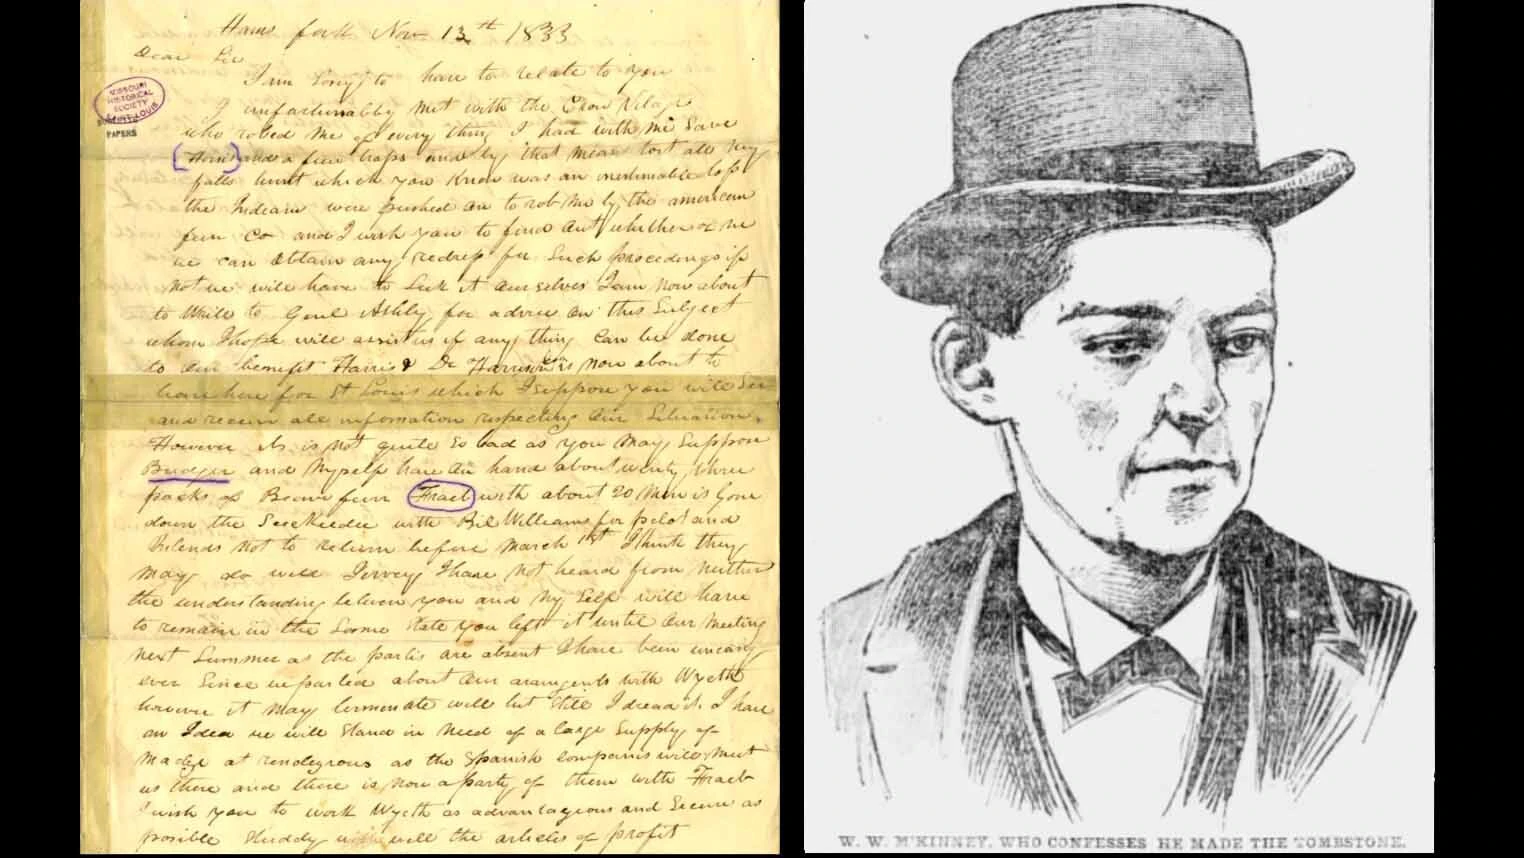 Hams fork Nov 13th 1833
Dear Sir
I am Sorry to have to relate to you
I unfortunably met with the Crow Vilage
who robed me of every thing I had with me Save
MISSOURI
HISTORICAL
SOCIETY
SAINT LOUIS
PAPERS
Horses and a few traps and by that means lost all my
falls hunt which you know was an inestimable loss
the Indians were pushed on to rob me by the american
furr Co and I wish you to find out whether or no
we can obtain any redress for Such procedings if
not we will have to Seek it ourselves I am now about
to Write to Genl Ashley for advice on this Subject
whom I hope will assist us if any thing can be done
to our benefit Harris & Dr Harrison is now about to
leave here for St Louis which I suppose you will See
and receive all infomation respecting our Situation.
However its is not quite So bad as you may Suppose
Bridger and myself have on hand about twenty three
packs of Beaver furr Fraeb with about 20 men is Gone
down the Seeskeedee with Bil Williams for pilot and
Intends not to return before March 1st I think they
may do well Jervey I have not heard from neither
the understanding between you and my Self will have
to remain in the Same State you left it until our meeting
next Summer as the partis are absent I have been uneasy
ever Since we parted about our arangents with Wyeth
however it may terminate well but Still I dread it I have
an Idea we will Stand in need of a large Supply of
Madze at rendezvous as the Spanish companis will meet
us there and there is now a party of them with Fraeb
I wish you to work Wyeth as advantageous and Secure as
posible Studdy well the articles of profit
W. W. M'KINNEY, WHO CONFESSES HE MADE THE TOMBSTONE.